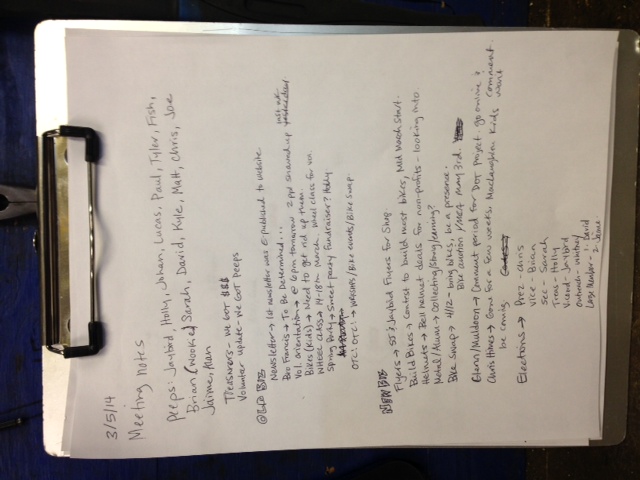 3/5/14
Meeting Notes
Peeps: Jaybird, Holly, Johan, Lucas, Paul, Tyler, Fish,
Brian (wookie) Sarah, David, Kyle, Matt, Chris, Joe
Jaime, Alan
Treasurers - we got $$$
Volunteer update - we got peeps
Old Biz
Newsletter → 1st newsletter was published to website
Bro Francis → To Be Determined...
Vol. orientation → @ 6pm tomorrow 2 ppl showed up last
Bikes (Kids) → Need to get rid of them.
Wheel class → 14-18th March. Wheel class for
Spring Party → Sweet party fundraiser? Holly
OTCI: OTCI → / Bike events / Bike Swap
New Biz
Flyers → Jaybird Flyers for Shop
Build Bikes → Contest to build most bikes, Mid March start.
Helmets → Bell helmet deals for non-profits - looking into
Metal / Alum → Collecting / Storing / earning?
Bike Swap → 4/12 - bring bikes, be a presence.
Bike auction YMCA May 3rd.
Glenn / Muldoon → Comment period for DOT Project. go online & comment.
Chris Hines → Gone for few weeks, Maclaughlin Kids want
be coming
Elections → Prez - Chris
Vice - Brian
Sec - Sarah
Treas - Holly
Vicord - Jaybird
Outreach - Whitney
Large Member - 1. David
2. Jaime